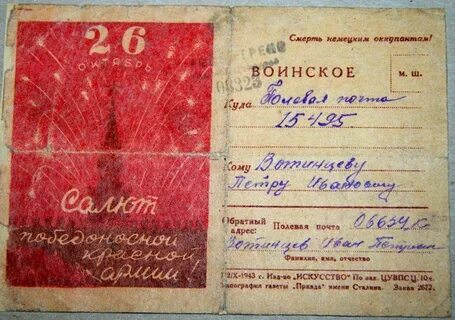 26
ОКТЯБРЬ
Салют
победоносной
красной
армии!
Смерть немецким оккупантам!
ВОИНСКОЕ
М. Ш.
06323
Куда Полевая почта
15495
Кому Вотинцеву
Петру Ивановичу
Обратный адрес: Полевая почта 06654
Вотинцев Иван Петрович
Фамилия, имя, отчество
2/X-1943 г. Изд-во „ИСКУССТВО" По зак. ЦУВПСП
Типография газеты „Правда" имени Сталина. Заказ 2672.